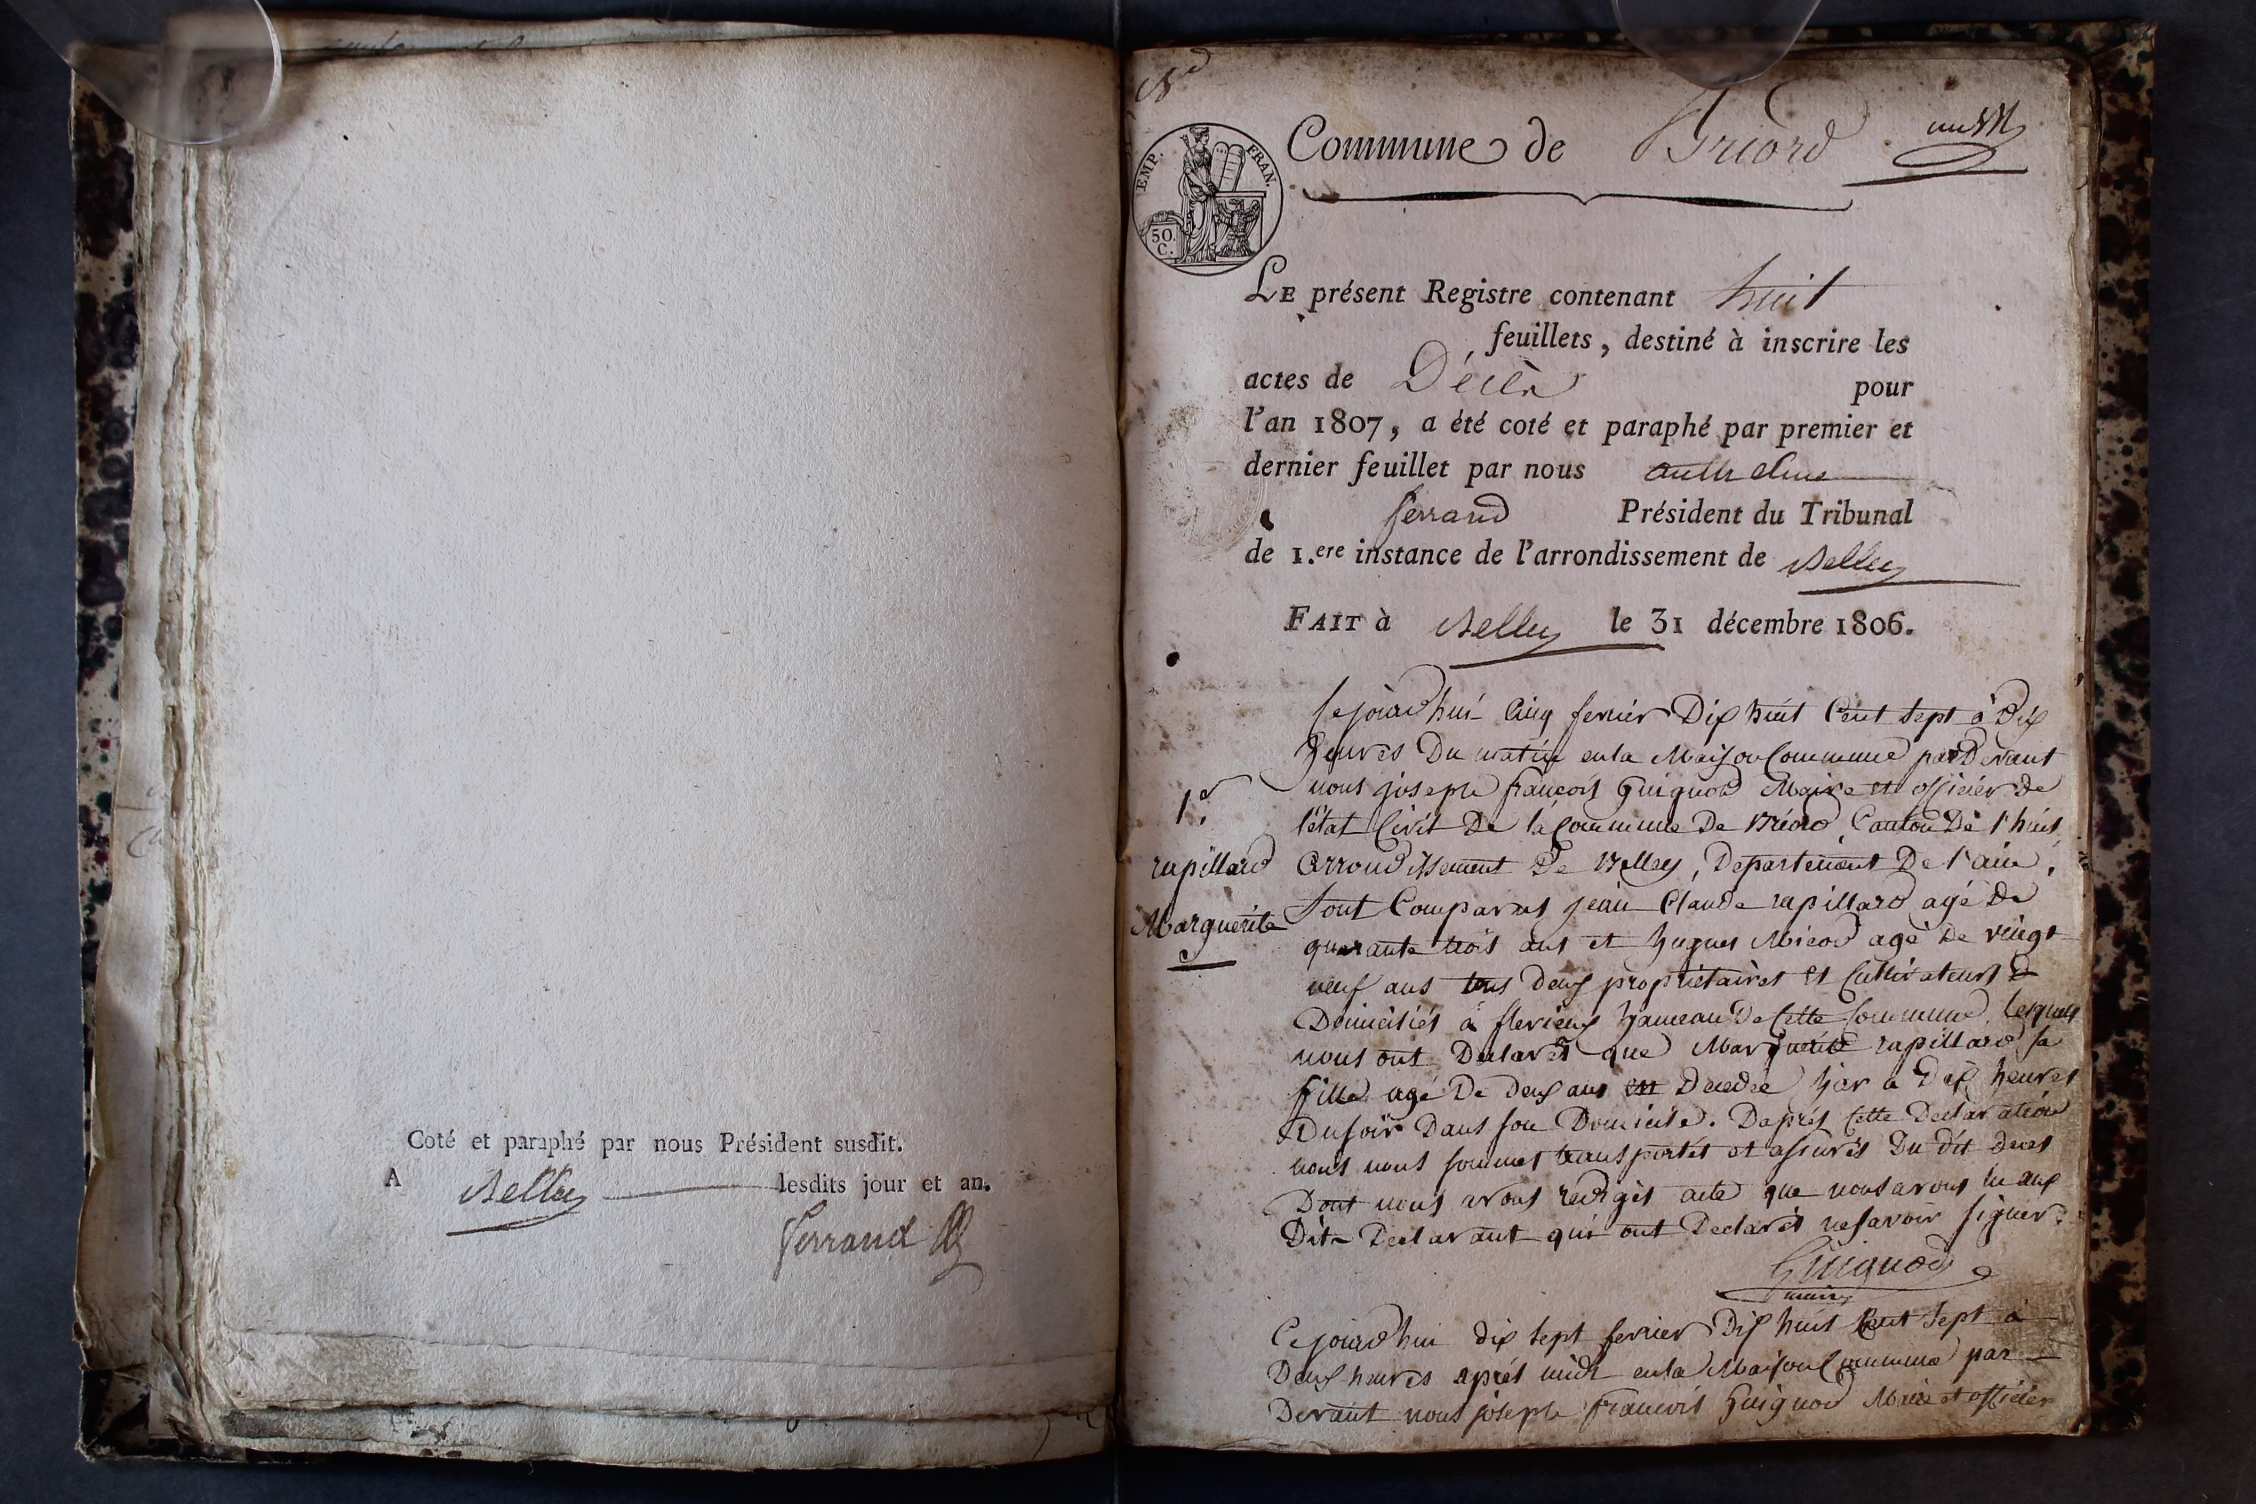 Coté et paraphé par nous Président susdit.
A Belley lesdits jour et an.
Ferrand
Commune de Briord
EMP. FRAN.
50. C.
LE présent Registre contenant huit
feuillets, destiné à inscrire les
actes de Décès pour
l'an 1807, a été coté et paraphé par premier et
dernier feuillet par nous anthelme
ferrand Président du Tribunal
de 1.ere instance de l'arrondissement de Belley
FAIT à Belley le 31 décembre 1806.
1er
rapillard
Marguerite
Cejourd'hui Cinq fevrier Dix huit Cent sept à Dix
heures Du matin en la Maison Commune par Devant
nous joseph françois Guignod Maire et officier de
l'état Civil De la Commune De Briord, Canton De l'huis
arrondissement De Belley, Departement De l'ain,
sont Comparus jean Claude rapillard agé De
quarante trois ans et hugues Micod agé De vingt
neuf ans tous deux proprietaires et Cultivateurs
Domiciliés à flerieux hameau De Cette Commune, lesquels
nous ont Declarés que Marguerite rapillard sa
fille agé De deux ans est Decedée hier a Dix heures
Du soir Dans son Domicile. Daprès Cette Declaration
nous nous sommes transportés et assurés Du dit deces
Dont nous avons redigés acte que nous avons lu aux
Dit Declarant qui ont Declarés ne savoir signer.
Guignod
maire
Cejourd'hui dix sept fevrier Dix huit Cent Sept à
Deux heures après midi en la Maison Commune par
Devant nous joseph françois Guignod Maire et officier